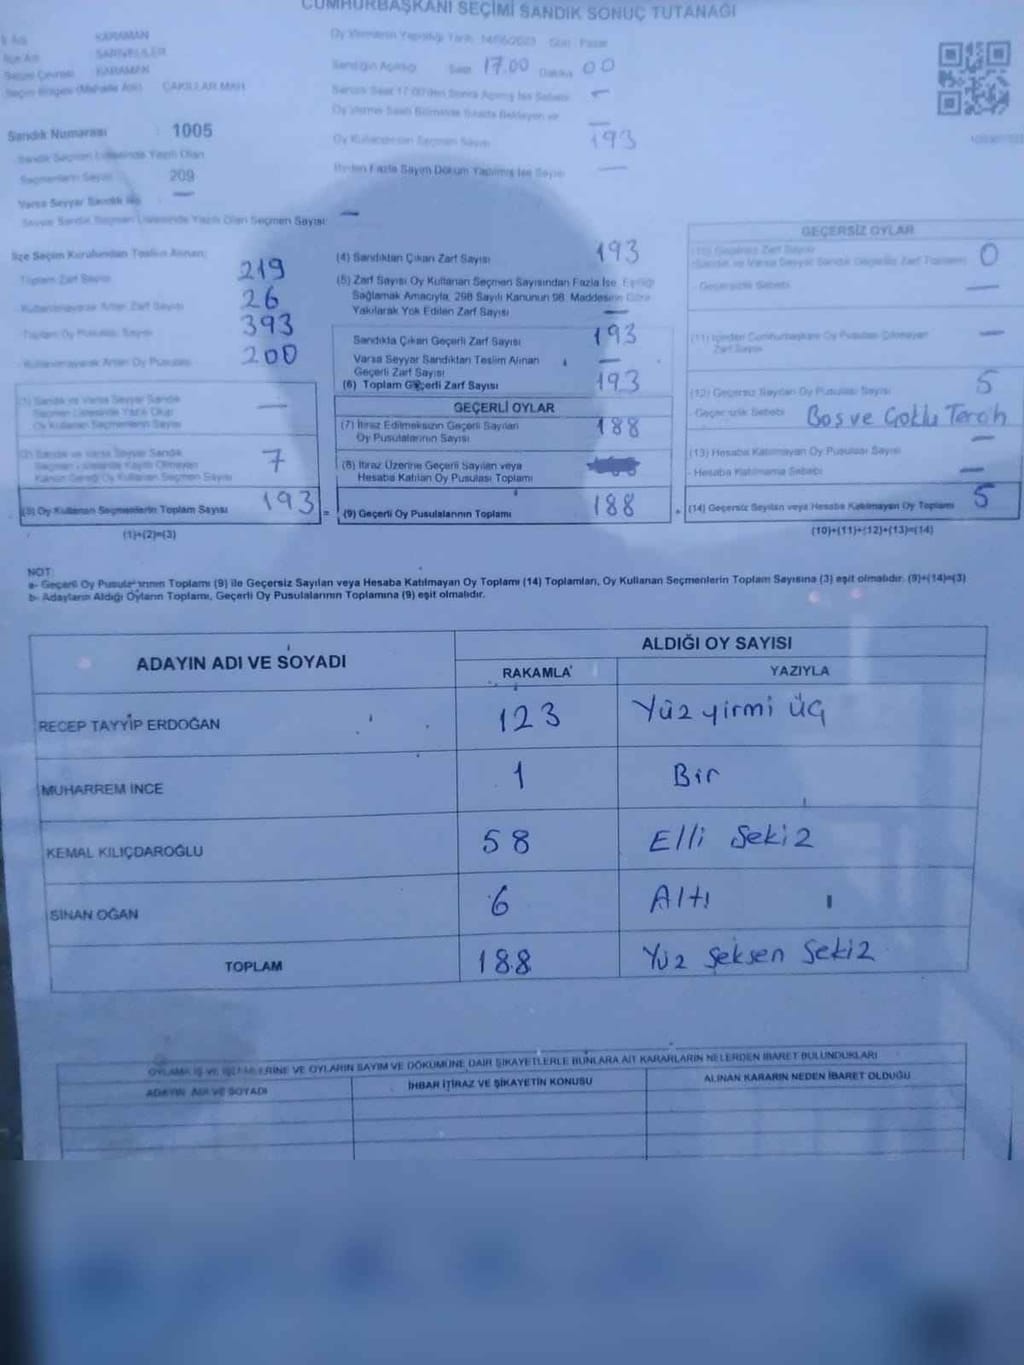 CUMHURBAŞKANI SEÇİMİ SANDIK SONUÇ TUTANAĞI
İl Adı KARAMAN
İlçe Adı SARIVELİLER
Seçim Çevresi KARAMAN
Seçim Bölgesi (Mahalle Adı) ÇAKILLAR MAH
Sandık Numarası : 1005
Sandık Seçmen Listesinde Yazılı Olan
Seçmenlerin Sayısı 209
Varsa Seyyar Sandık No —
Seyyar Sandık Seçmen Listesinde Yazılı Olan Seçmen Sayısı: —
Oy Vermenin Yapıldığı Tarih 14/05/2023 Gün Pazar
Sandığın Açıldığı Saat 17.00 Dakika 00
Sandık Saat 17.00'den Sonra Açılmış İse Sebebi —
Oy Verme Saati Bitiminde Sırada Bekleyen ve —
Oy Kullanan Seçmen Sayısı 193
Birden Fazla Sayım Döküm Yapılmış İse Sayısı —
İlçe Seçim Kurulundan Teslim Alınan;
Toplam Zarf Sayısı 219
Kullanılmayarak Artan Zarf Sayısı 26
Toplam Oy Pusulası Sayısı 393
Kullanılmayarak Artan Oy Pusulası 200
(1) Sandık ve Varsa Seyyar Sandık
Seçmen Listesinde Yazılı Olup
Oy Kullanan Seçmenlerin Sayısı —
(2) Sandık ve Varsa Seyyar Sandık
Seçmen Listesinde Kayıtlı Olmayan
Kanun Gereği Oy Kullanan Seçmen Sayısı 7
(3) Oy Kullanan Seçmenlerin Toplam Sayısı 193 =
(1)+(2)=(3)
(4) Sandıktan Çıkan Zarf Sayısı 193
(5) Zarf Sayısı Oy Kullanan Seçmen Sayısından Fazla İse, Eşitliği
Sağlamak Amacıyla, 298 Sayılı Kanunun 98. Maddesine Göre
Yakılarak Yok Edilen Zarf Sayısı —
Sandıkta Çıkan Geçerli Zarf Sayısı 193
Varsa Seyyar Sandıktan Teslim Alınan
Geçerli Zarf Sayısı —
(6) Toplam Geçerli Zarf Sayısı 193
GEÇERLİ OYLAR
(7) İtiraz Edilmeksizin Geçerli Sayılan
Oy Pusulalarının Sayısı 188
(8) İtiraz Üzerine Geçerli Sayılan veya
Hesaba Katılan Oy Pusulası Toplamı
(9) Geçerli Oy Pusulalarının Toplamı 188 +
GEÇERSİZ OYLAR
(10) Geçersiz Zarf Sayısı
(Sandık ve Varsa Seyyar Sandık Geçersiz Zarf Toplamı) 0
- Geçersizlik Sebebi —
(11) İçinden Cumhurbaşkanı Oy Pusulası Çıkmayan
Zarf Sayısı —
(12) Geçersiz Sayılan Oy Pusulası Sayısı 5
- Geçersizlik Sebebi Boş ve Çoklu Tercih
(13) Hesaba Katılmayan Oy Pusulası Sayısı —
- Hesaba Katılmama Sebebi —
(14) Geçersiz Sayılan veya Hesaba Katılmayan Oy Toplamı 5
(10)+(11)+(12)+(13)=(14)
NOT:
a- Geçerli Oy Pusulalarının Toplamı (9) ile Geçersiz Sayılan veya Hesaba Katılmayan Oy Toplamı (14) Toplamları, Oy Kullanan Seçmenlerin Toplam Sayısına (3) eşit olmalıdır. (9)+(14)=(3)
b- Adayların Aldığı Oyların Toplamı, Geçerli Oy Pusulalarının Toplamına (9) eşit olmalıdır.
ADAYIN ADI VE SOYADI
ALDIĞI OY SAYISI
RAKAMLA YAZIYLA
RECEP TAYYİP ERDOĞAN 123 Yüz yirmi üç
MUHARREM İNCE 1 Bir
KEMAL KILIÇDAROĞLU 58 Elli Sekiz
SİNAN OĞAN 6 Altı
TOPLAM 188 Yüz Seksen Sekiz
OYLAMA İŞ VE İŞLEMLERİNE VE OYLARIN SAYIM VE DÖKÜMÜNE DAİR ŞİKAYETLERLE BUNLARA AİT KARARLARIN NELERDEN İBARET BULUNDUKLARI
ADAYIN ADI VE SOYADI İHBAR İTİRAZ VE ŞİKAYETİN KONUSU ALINAN KARARIN NEDEN İBARET OLDUĞU